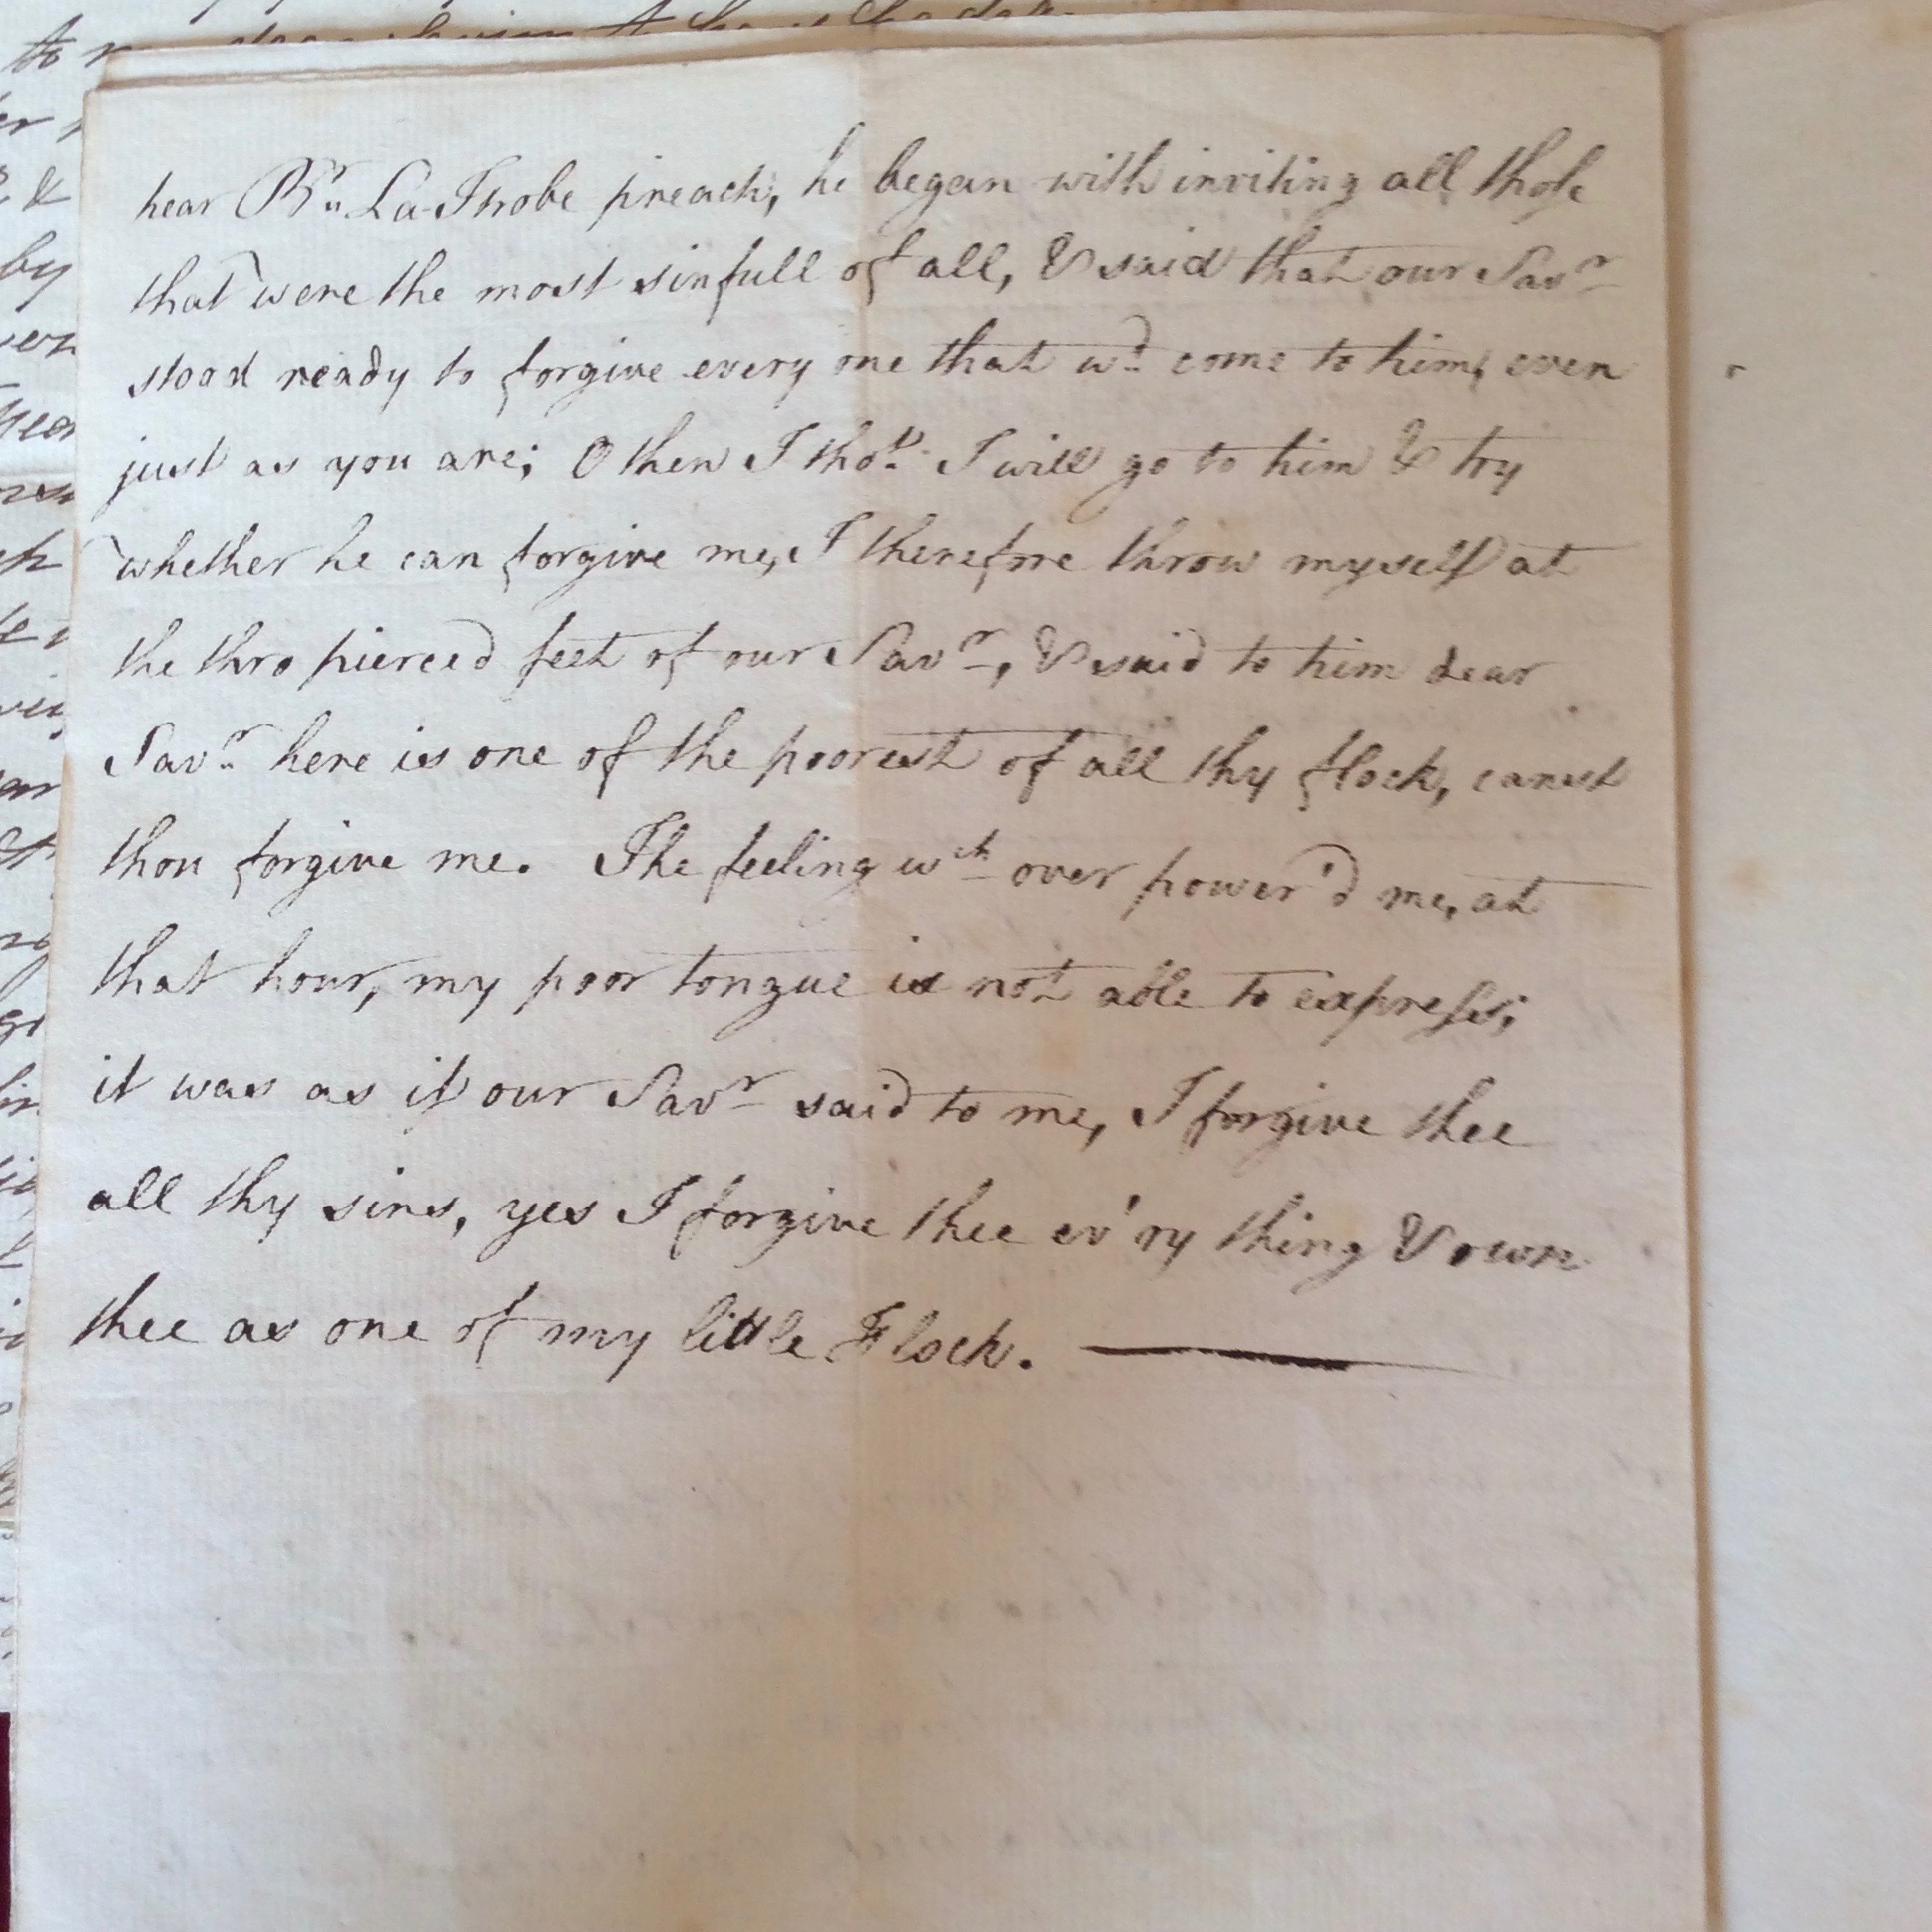 hear Br. La-Trobe preach, he began with inviting all those
that were the most sinfull of all, & said that our Savr
stood ready to forgive every one that wd. come to him, even
just as you are; O then I thot. I will go to him & try
whether he can forgive me, I therefore throw myself at
the thro pierced feet of our Savr, & said to him dear
Savr. here is one of the poorest of all thy flock, canst
thou forgive me. The feeling wch over power'd me, at
that hour, my poor tongue is not able to express;
it was as if our Savr said to me, I forgive thee
all thy sins, yes I forgive thee ev'ry thing & own
thee as one of my little Flock. —